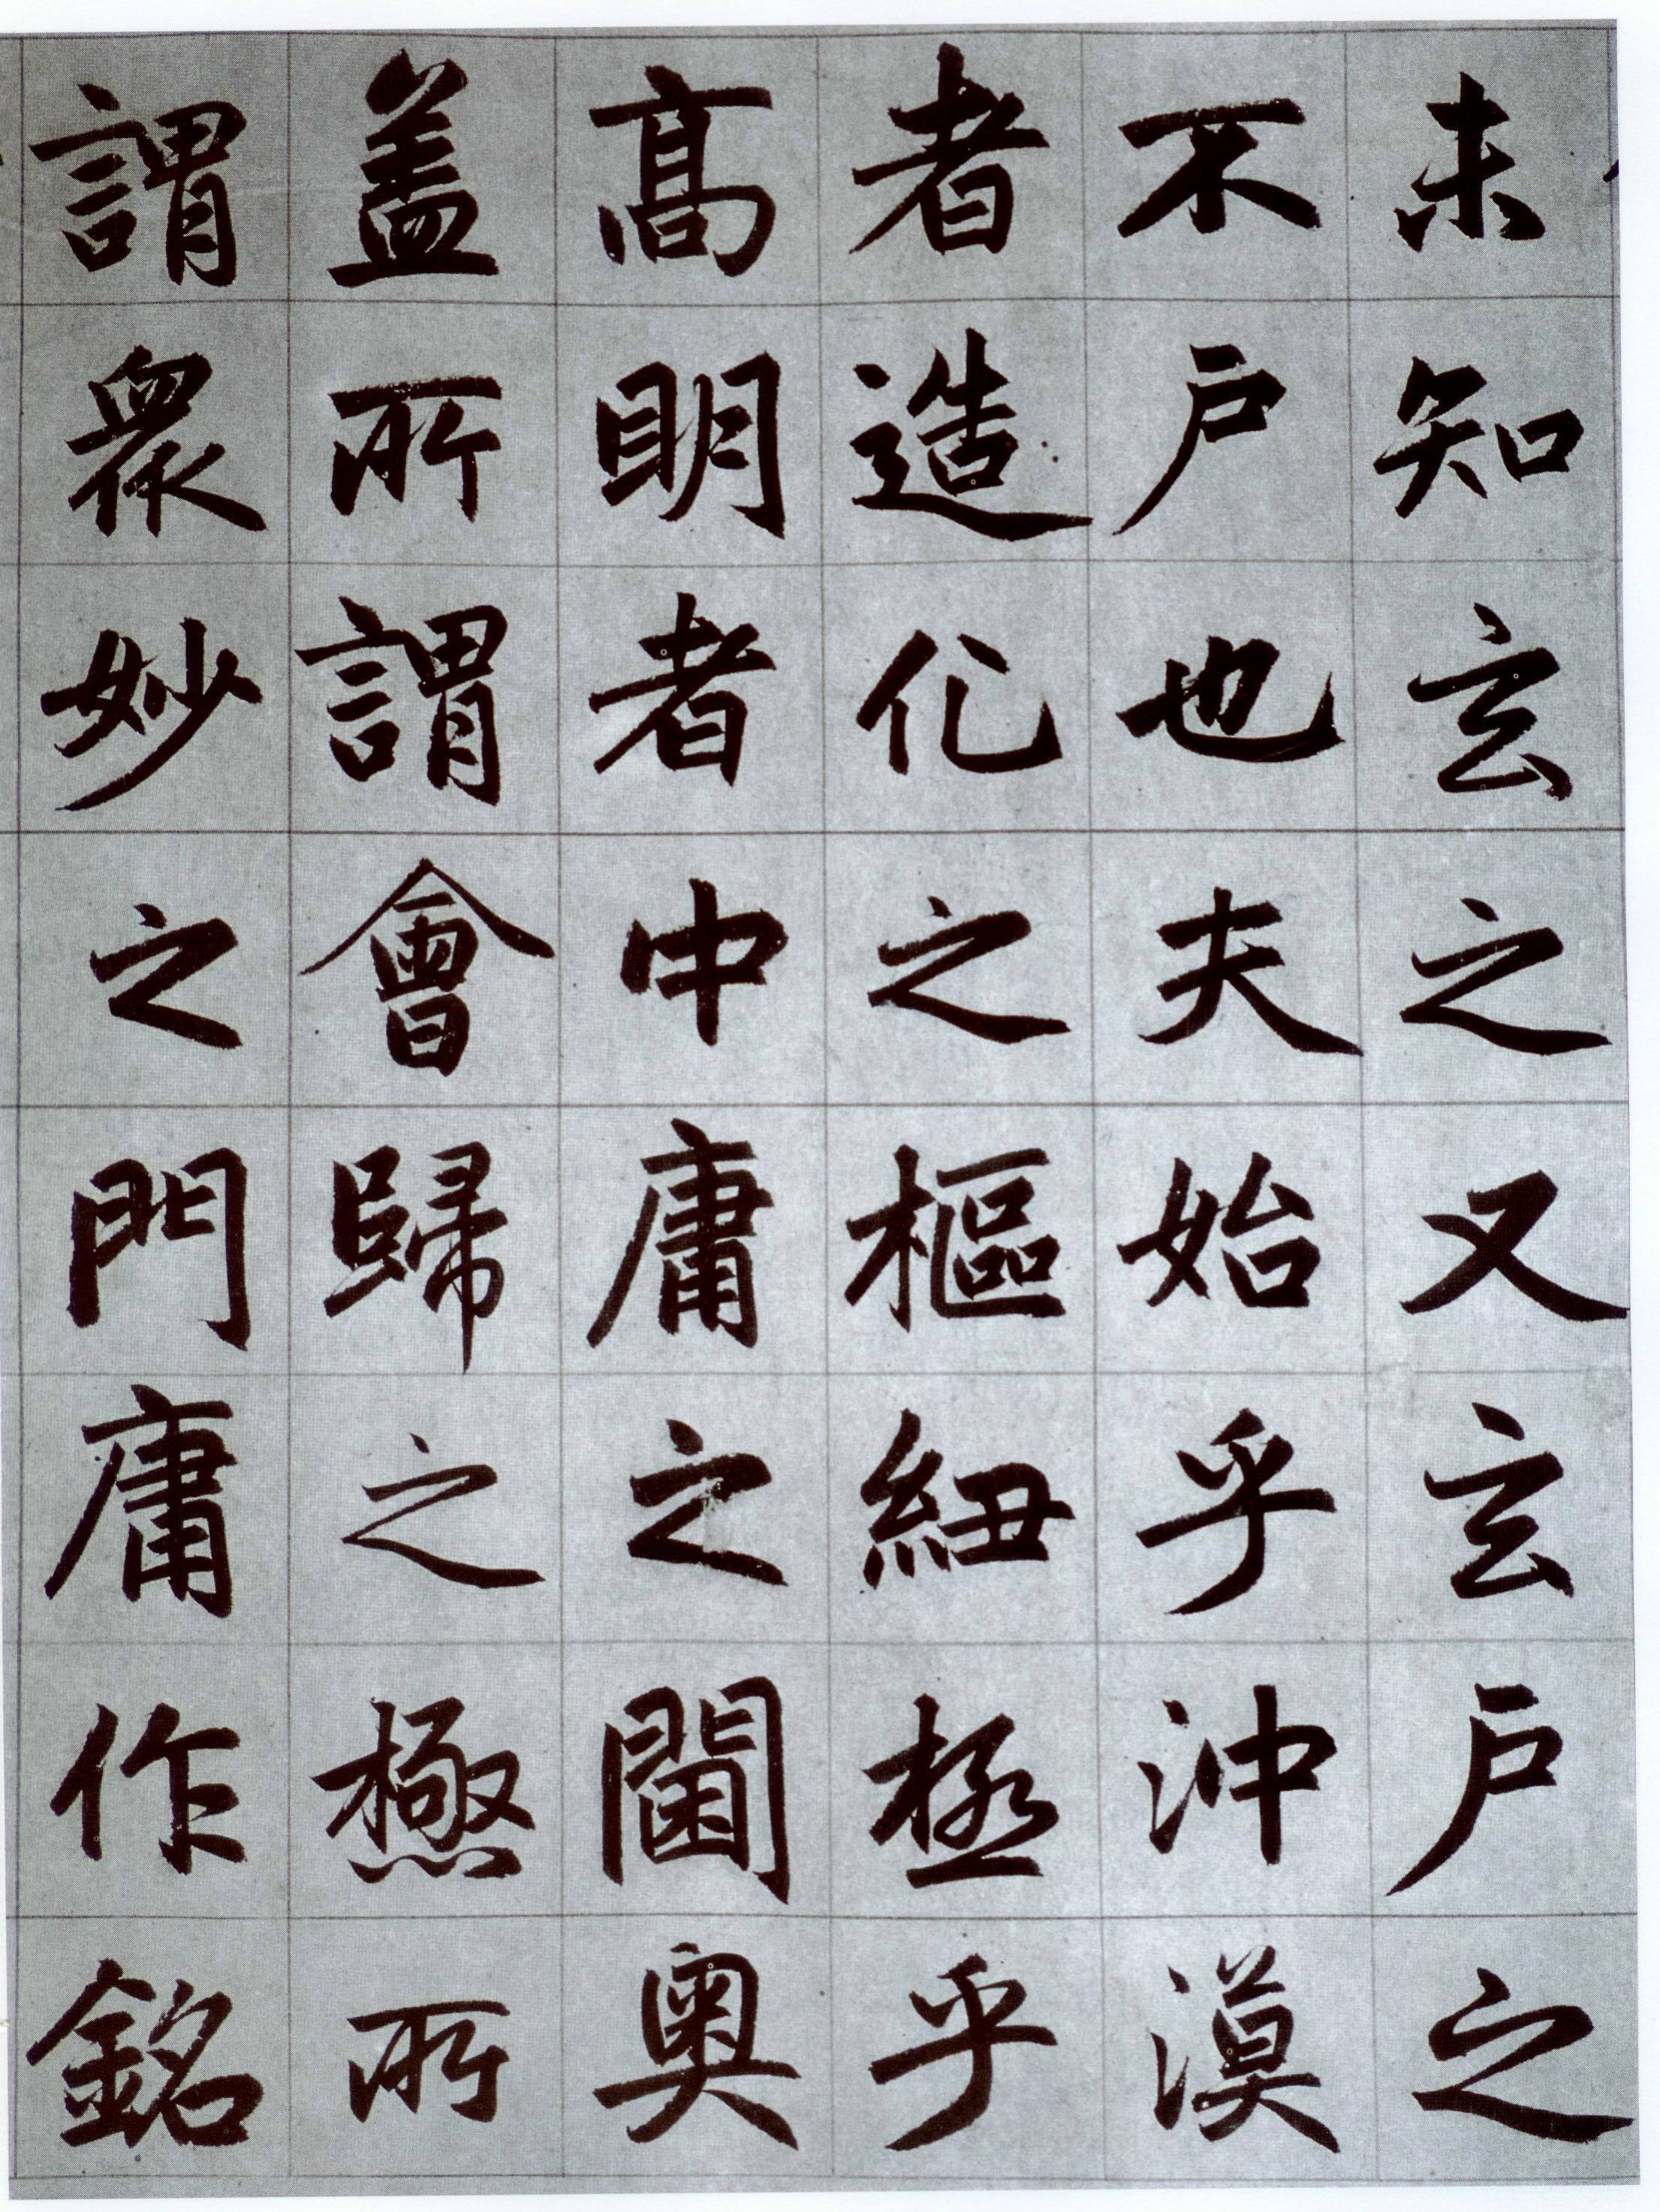 未知玄之又玄戶之
不戶也夫始乎沖漠
者造化之樞紐極乎
高明者中庸之閫奧
蓋所謂會歸之極所
謂衆妙之門庸作銘